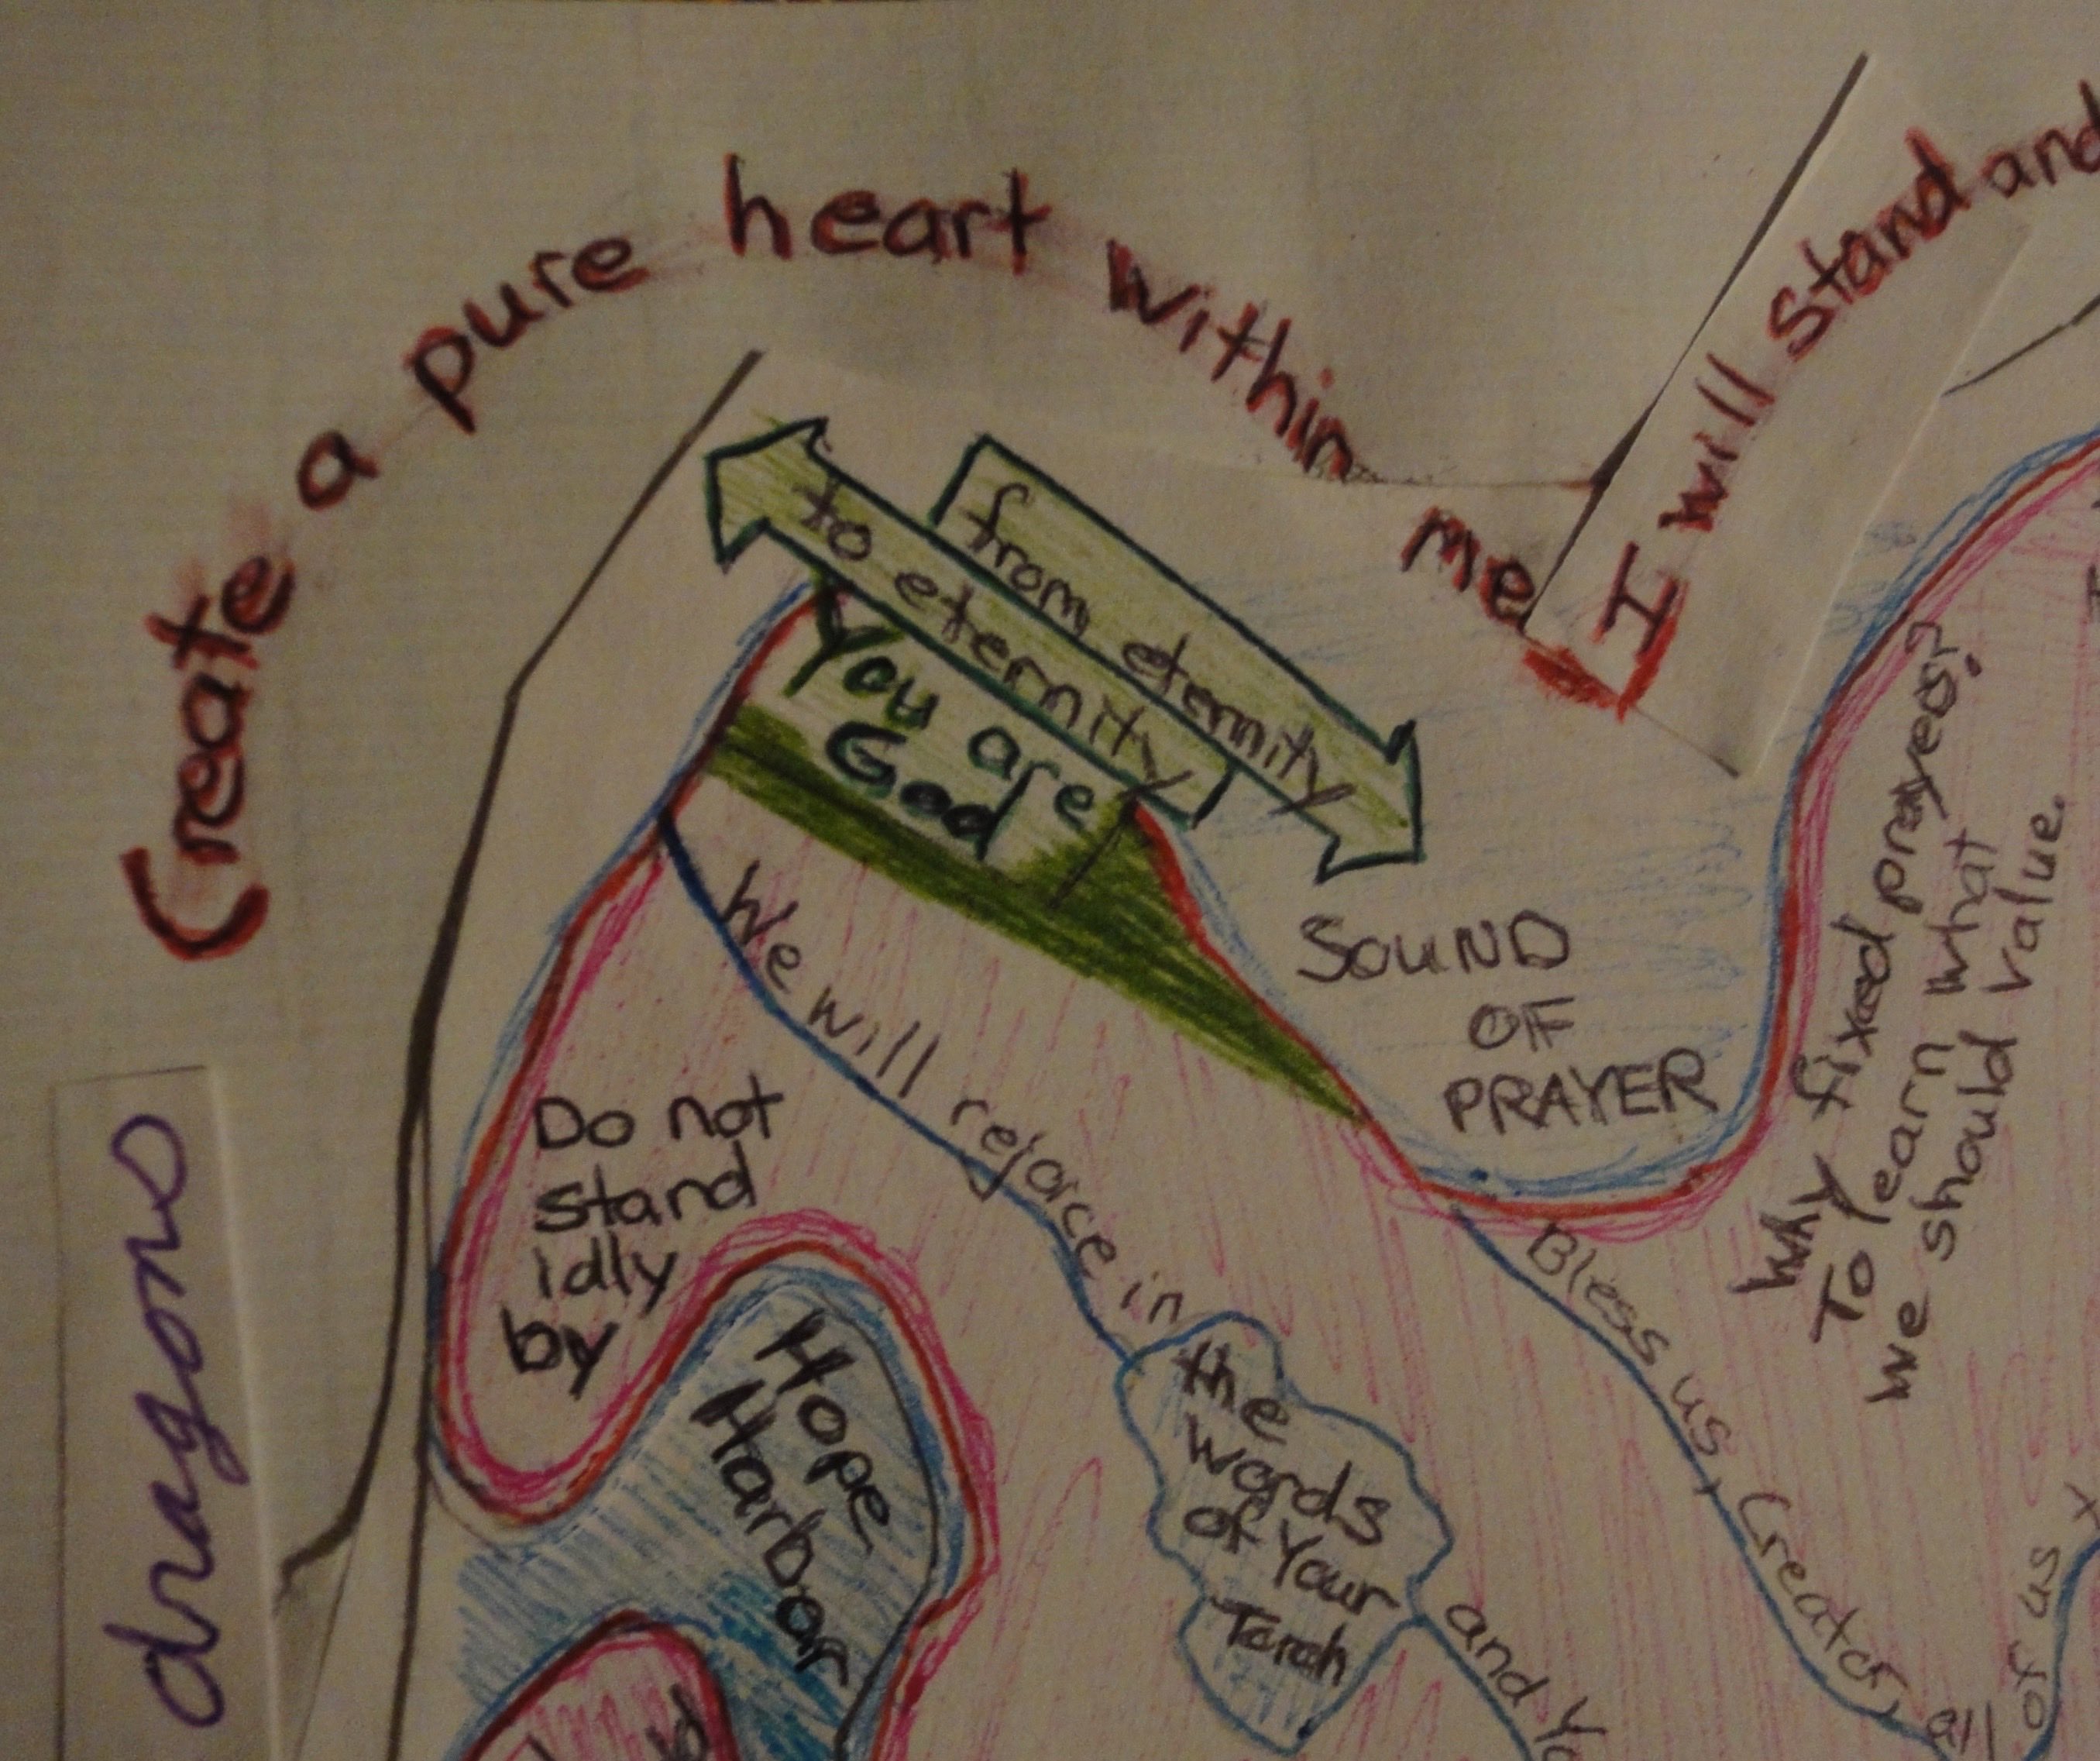 Create a pure heart within me
I will stand and
from eternity
to eternity
You are
God
SOUND
OF
PRAYER
Why fixed prayers?
To learn what
we should value.
We will rejoice in
the
words
of Your
Torah
and Yo
Do not
stand
idly
by
Hope
Harbor
Bless us, Creator, all
of us
dragons